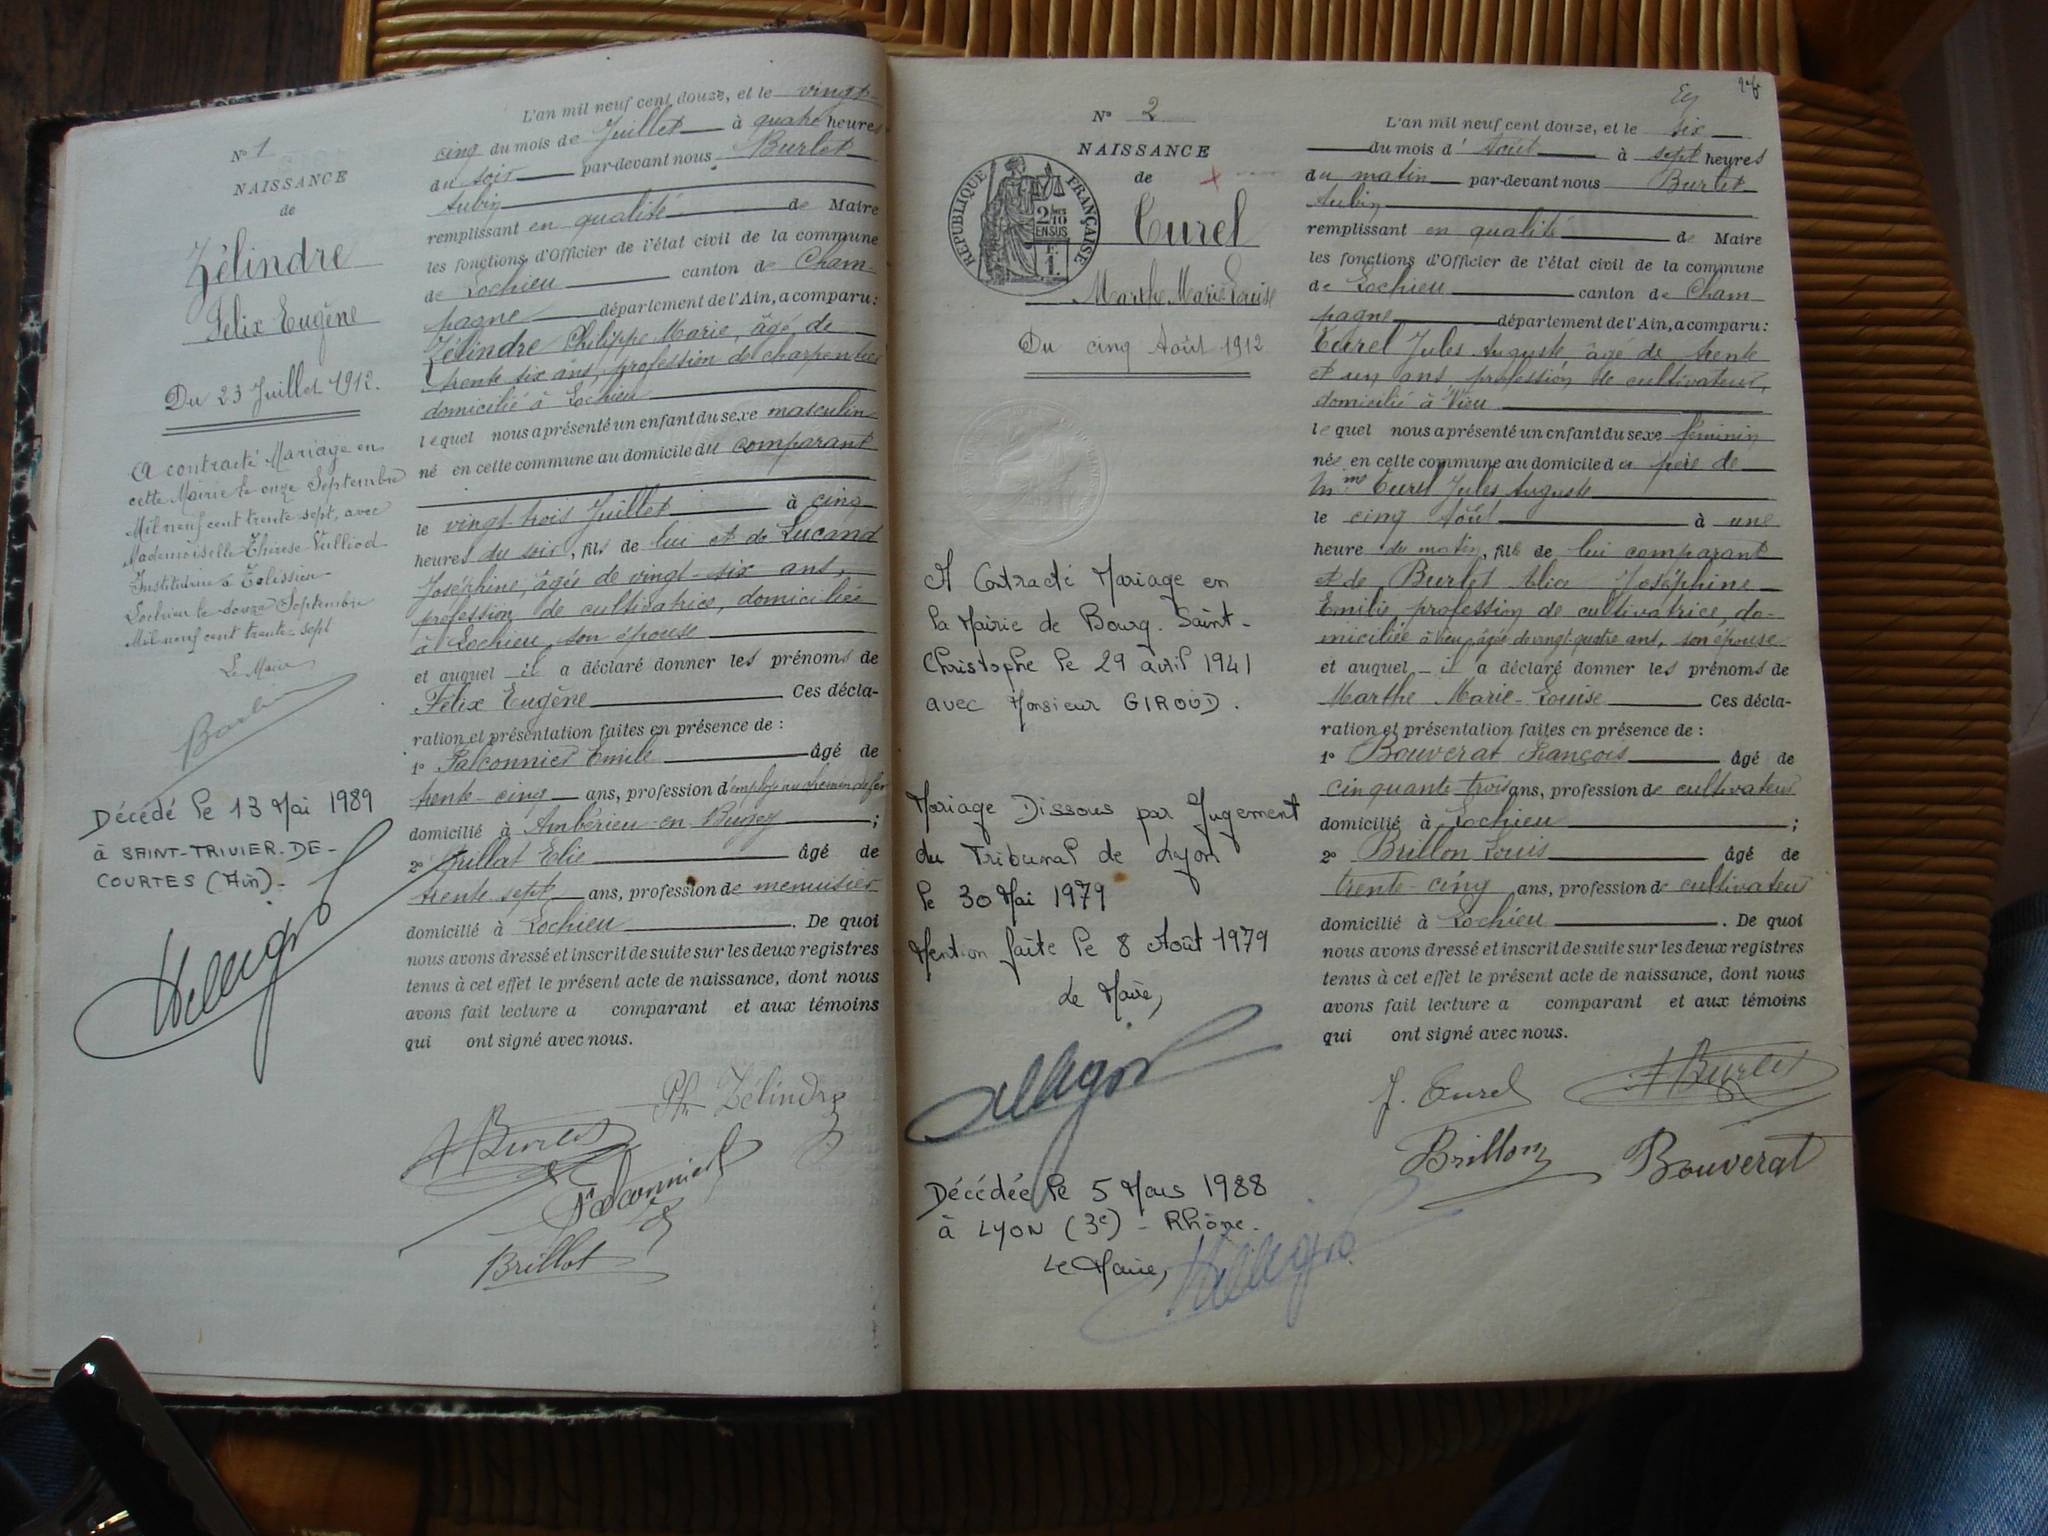 N° 1
NAISSANCE
de
Zélindre
Félix Eugène
Du 23 Juillet 1912.
A contracté Mariage en
cette Mairie le onze Septembre
Mil neuf cent trente sept, avec
Mademoiselle Thérèse Vulliod
Institutrice à
Lochieu le douze Septembre
Mil neuf cent trente-sept
Le Maire
Décédé le 13 Mai 1989
à SAINT-TRIVIER-DE-
COURTES (Ain).
L'an mil neuf cent douze, et le vingt
cinq du mois de Juillet à quatre heures
du soir par-devant nous Burlet
Aubin
remplissant en qualité de Maire
les fonctions d'Officier de l'état civil de la commune
de Lochieu canton de Cham-
pagne département de l'Ain, a comparu :
Zélindre Philippe Marie, âgé de
trente six ans, profession de charpentier
domicilié à Lochieu
lequel nous a présenté un enfant du sexe masculin
né en cette commune au domicile du comparant
le vingt-trois Juillet à cinq
heures du soir, fils de lui et de Lucand
Joséphine, âgée de vingt-six ans,
profession de cultivatrice, domiciliée
à Lochieu, son épouse
et auquel il a déclaré donner les prénoms de
Félix Eugène Ces décla-
ration et présentation faites en présence de :
1° Falconnier Emile âgé de
trente-cinq ans, profession d'employé au chemin de fer
domicilié à Ambérieu-en-Bugey ;
2° Elie âgé de
trente sept ans, profession de menuisier
domicilié à Lochieu. De quoi
nous avons dressé et inscrit de suite sur les deux registres
tenus à cet effet le présent acte de naissance, dont nous
avons fait lecture a comparant et aux témoins
qui ont signé avec nous.
Ph. Zélindre
A Burlet
Falconnier
Brillat
N° 2
NAISSANCE
de
RÉPUBLIQUE FRANÇAISE
2/10
EN SUS
F.
1.
Curel
Marthe Marie Louise
Du cinq Août 1912
A Contracté Mariage en
la Mairie de Bourg-Saint-
Christophe le 29 avril 1941
avec Monsieur GIROUD.
Mariage Dissous par Jugement
du Tribunal de Lyon
le 30 Mai 1979
Mention faite le 8 Août 1979
Le Maire,
Décédée le 5 Mars 1988
à LYON (3e) - Rhône.
Le Maire,
L'an mil neuf cent douze, et le six
du mois d'Août à sept heures
du matin par-devant nous Burlet
Aubin
remplissant en qualité de Maire
les fonctions d'Officier de l'état civil de la commune
de Lochieu canton de Cham-
pagne département de l'Ain, a comparu :
Curel Jules Auguste, âgé de trente
et un ans profession de cultivateur,
domicilié à Vieu
lequel nous a présenté un enfant du sexe féminin
née en cette commune au domicile du père de
Mme Curel Jules Auguste
le cinq Août à une
heure du matin, fille de lui comparant
et de Burlet Joséphine
Emilie, profession de cultivatrice, do-
miciliée à Vieu, âgée de vingt-quatre ans, son épouse
et auquel il a déclaré donner les prénoms de
Marthe Marie-Louise Ces décla-
ration et présentation faites en présence de :
1° Bouverat François âgé de
cinquante-trois ans, profession de cultivateur
domicilié à Lochieu ;
2° Brillon Louis âgé de
trente-cinq ans, profession de cultivateur
domicilié à Lochieu. De quoi
nous avons dressé et inscrit de suite sur les deux registres
tenus à cet effet le présent acte de naissance, dont nous
avons fait lecture a comparant et aux témoins
qui ont signé avec nous.
J. Curel A Burlet
Brillon Bouverat